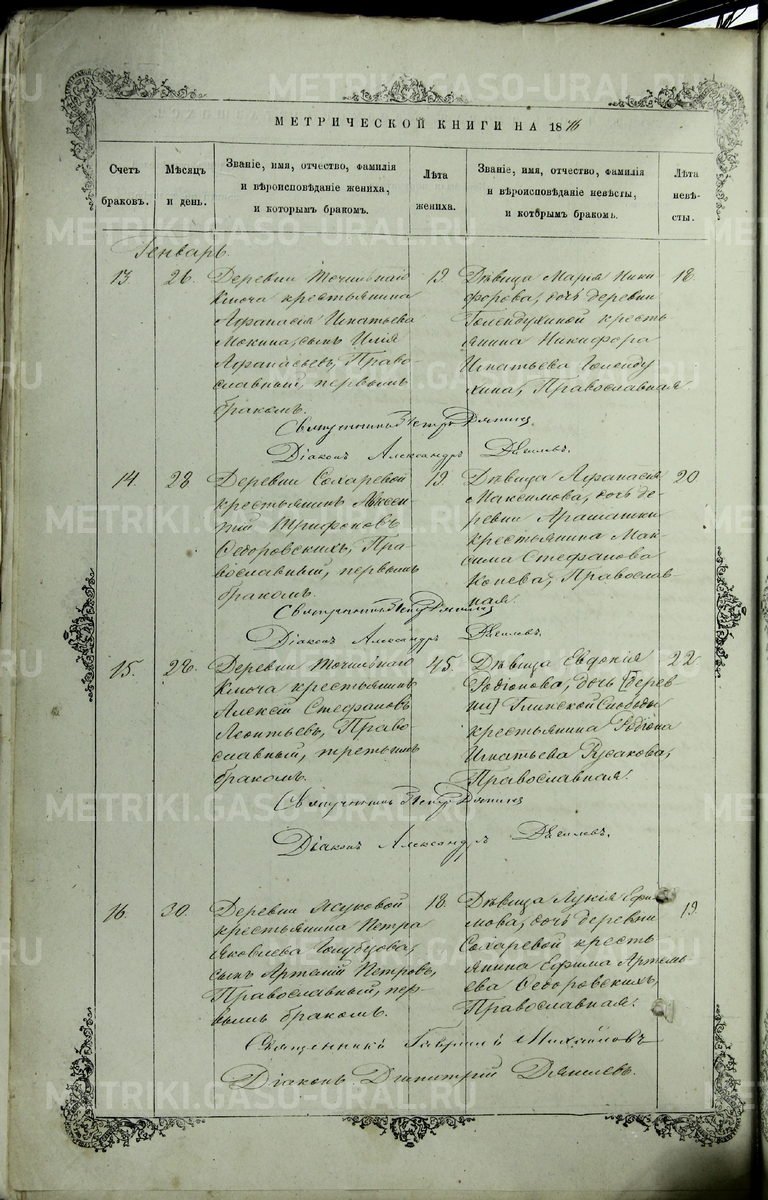 МЕТРИЧЕСКОЙ КНИГИ НА 1876
Счетъ браковъ.
Мѣсяцъ и день.
Званіе, имя, отчество, фамилія
и вѣроисповѣданіе жениха,
и которымъ бракомъ.
Лѣта жениха.
Званіе, имя, отчество, фамилія
и вѣроисповѣданіе невѣсты,
и которымъ бракомъ.
Лѣта невѣ-
сты.
Генварь.
13. 26.
Деревни Точильнаго
Ключа крестьянина
Афанасія Игнатьева
Мокина, сынъ Илія
Афанасьевъ, Право-
славный, первымъ
бракомъ.
19.
Дѣвица Марія Ники-
форова, дочь деревни
Голендухиной кресть
янина Никифора
Игнатьева Голенду
хина, Православная
18.
Священникъ Петръ
Діаконъ Александръ
14. 28
Деревни Сохаревой
крестьянинъ
Трифоновъ
Ѳедоровскихъ, Пра-
вославный, первымъ
бракомъ.
19.
Дѣвица Афанасія
Максимова, дочь де-
ревни Арамашки
крестьянина Мак-
сима Стефанова
Православ-
ная.
20
Священникъ Петръ
Діаконъ Александръ
15. 28.
Деревни Точильнаго
Ключа крестьянинъ
Алексій Стефановъ
Леонтьевъ, Право
славный, третьимъ
бракомъ.
45.
Дѣвица Евдокія
Родіонова, дочь [дерев
ни] Глинской Слободы
крестьянина Родіона
Игнатьева Русакова,
Православная.
22.
Священникъ Петръ
Діаконъ Александръ
16. 30.
Деревни Ясуковой
крестьянина Петра
Яковлева Голубцова,
сынъ Артемій Петровъ,
Православный, пер-
вымъ бракомъ.
18.
Дѣвица Лукія Ефи
мова, дочь деревни
Сохаревой кресть
янина Ефима Артемь
ева Ѳедоровскихъ,
Православная.
19.
Священникъ Гавріилъ
Діаконъ Димитрій
METRIKI.GASO-URAL.RU